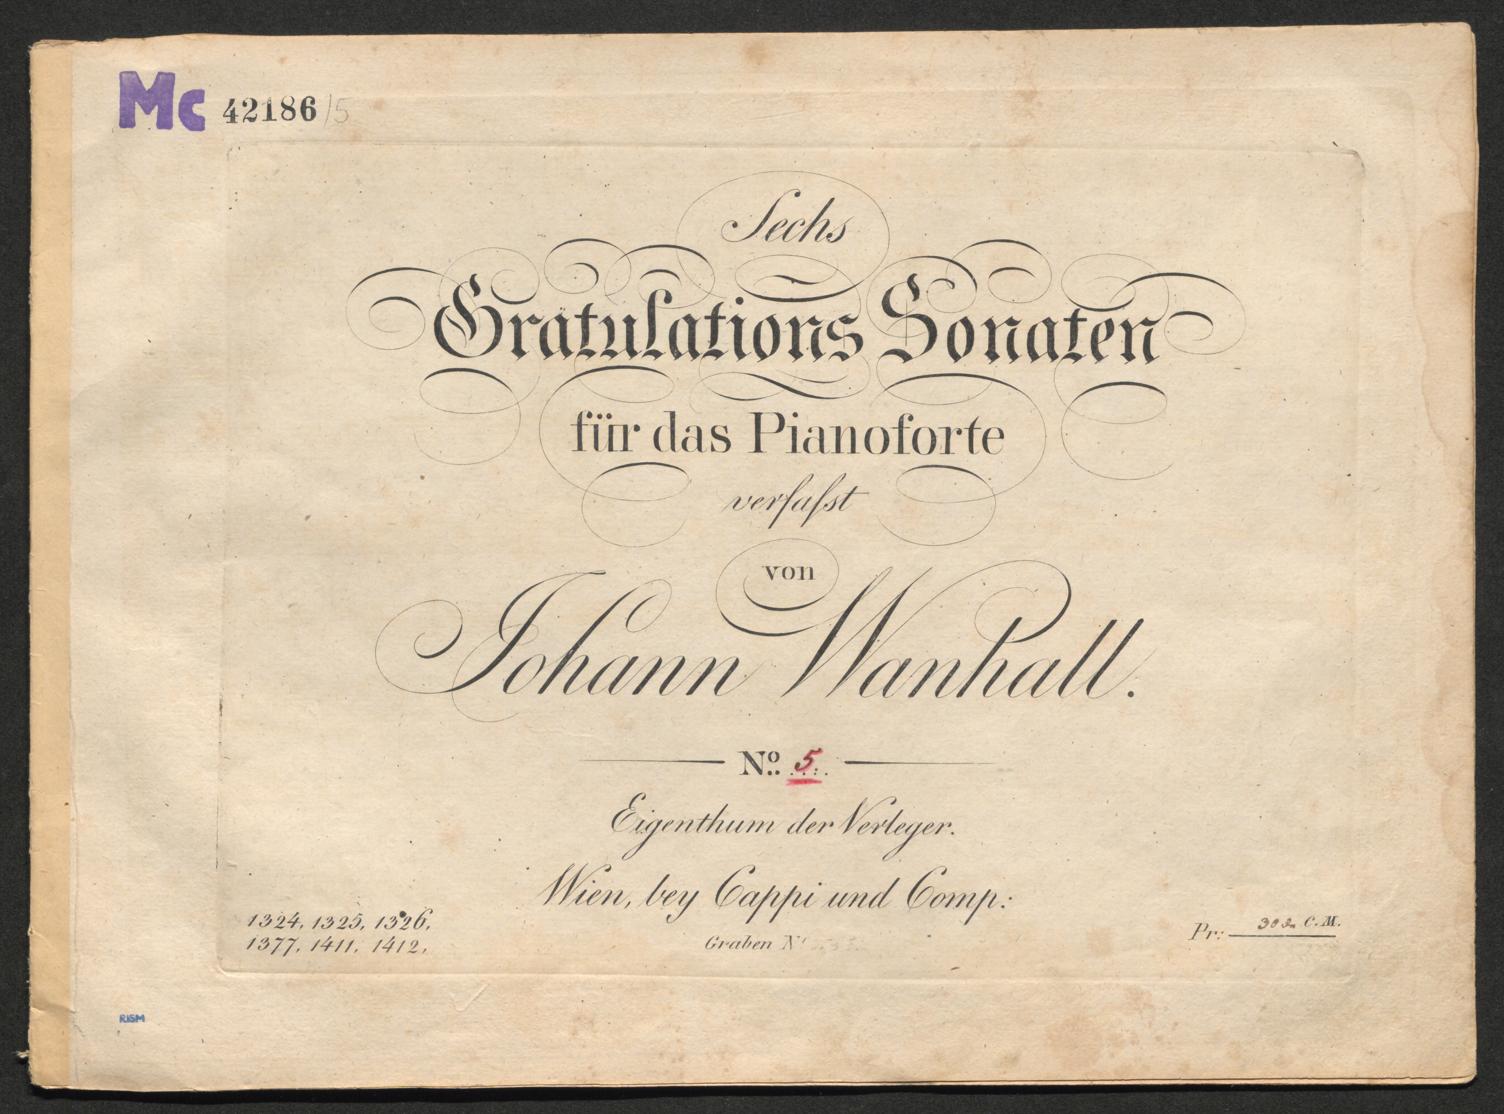 Mc 42186/5
Sechs
Gratulations Sonaten
für das Pianoforte
verfaſst
von
Johann Wanhall.
No. 5.
Eigenthum der Verleger.
Wien, bey Cappi und Comp:
Graben No
1324, 1325, 1326,
1377, 1411, 1412,
Pr: C.M.
RISM